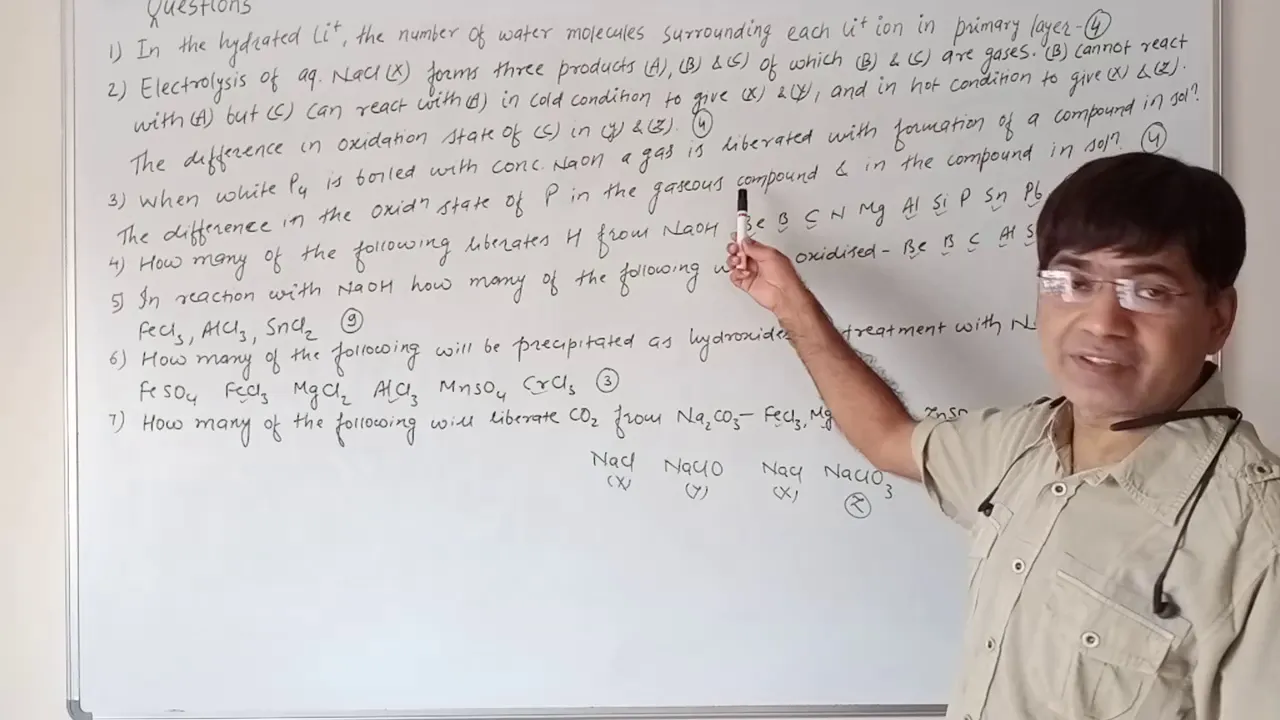 Questions
1) In the hydrated Li⁺, the number of water molecules surrounding each Li⁺ ion in primary layer - 4
2) Electrolysis of aq. NaCl (X) forms three products (A), (B) & (C) of which (B) & (C) are gases. (B) cannot react
with (A) but (C) can react with (A) in cold condition to give (X) & (Y), and in hot condition to give (X) & (Z).
The difference in oxidation state of (C) in (Y) & (Z). 4
3) When white P₄ is boiled with conc. NaOH a gas is liberated with formation of a compound in solⁿ.
The difference in the oxidⁿ state of P in the gaseous compound & in the compound in solⁿ. 4
4) How many of the following liberates H from NaOH Be B C N Mg Al Si P Sn Pb
5) In reaction with NaOH how many of the following oxidised - Be B C Al
FeCl₃, AlCl₃, SnCl₂ 9
6) How many of the following will be precipitated as hydroxides treatment with
FeSO₄ FeCl₃ MgCl₂ AlCl₃ MnSO₄ CrCl₃ 3
7) How many of the following will liberate CO₂ from Na₂CO₃ - FeCl₃, Mg
NaCl NaClO NaCl NaClO₃
(X) (Y) (X) Z